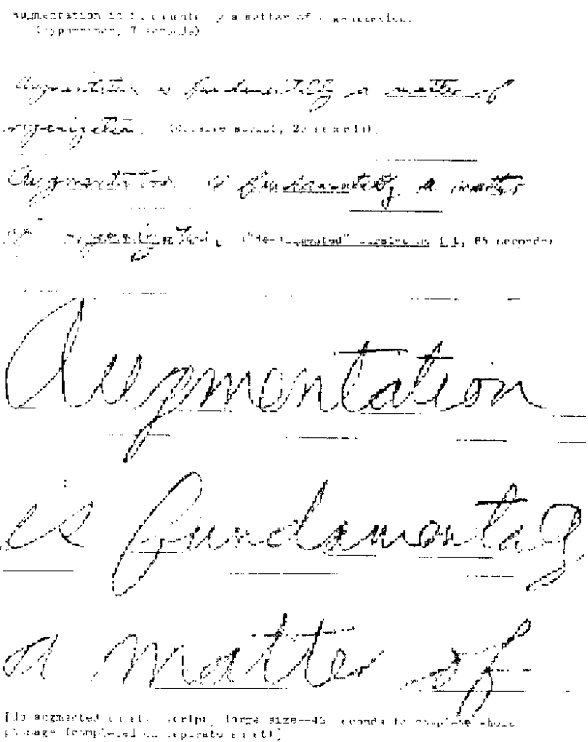 Augmentation is fundamentally a matter of organization.
(Typewriter, 7 seconds)
Augmentation is fundamentally a matter of
organization. (Cursive script, 20 seconds)
Augmentation is fundamentally a matter
of organization. ("De-augmented" cursive 65 seconds)
Augmentation
is fundamentally
a matter of
script, large size--42 seconds to complete
passage [completed on separate sheet)]